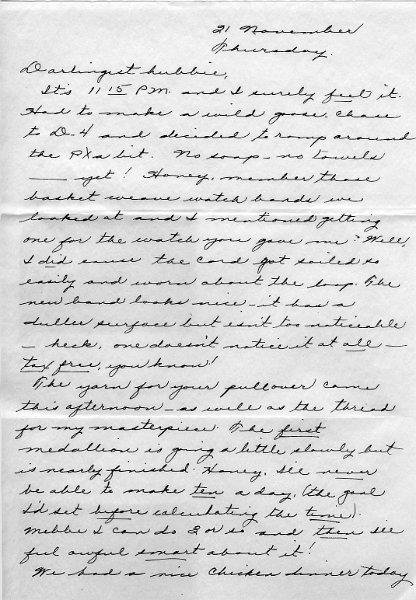 21 November
Thursday.
Darlingest hubbie,
It's 11 15 P.M. and I surely feel it.
Had to make a wild goose chase
to D-4 and decided to romp around
the PX a bit. No soap - no towels
— yet! Honey, member those
basket weave watch bands we
looked at and I mentioned getting
one for the watch you gave me? Well,
I did cause the cord got soiled so
easily and worn about the loop. The
new band looks nice - it has a
duller surface but isn't too noticeable
- heck, one doesn't notice it at all -
tax free, you know!
The yarn for your pullover came
this afternoon - as well as the thread
for my masterpiece. The first
medallion is going a little slowly but
is nearly finished. Honey, I'll never
be able to make ten a day, (the goal
I'd set before calculating the time).
Mebbe I can do 2 or so and then I'll
feel awful smart about it!
We had a nice chicken dinner today